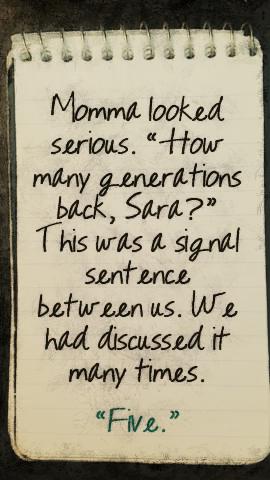 Momma looked
serious. "How
many generations
back, Sara?"
This was a signal
sentence
between us. We
had discussed it
many times.
"Five."